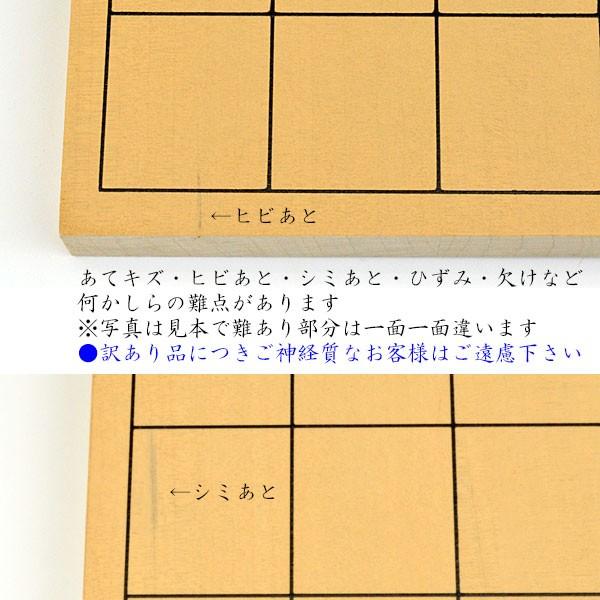 ←ヒビあと
あてキズ・ヒビあと・シミあと・ひずみ・欠けなど
何かしらの難点があります
※写真は見本で難あり部分は一面一面違います
●訳あり品につきご神経質なお客様はご遠慮下さい
←シミあと